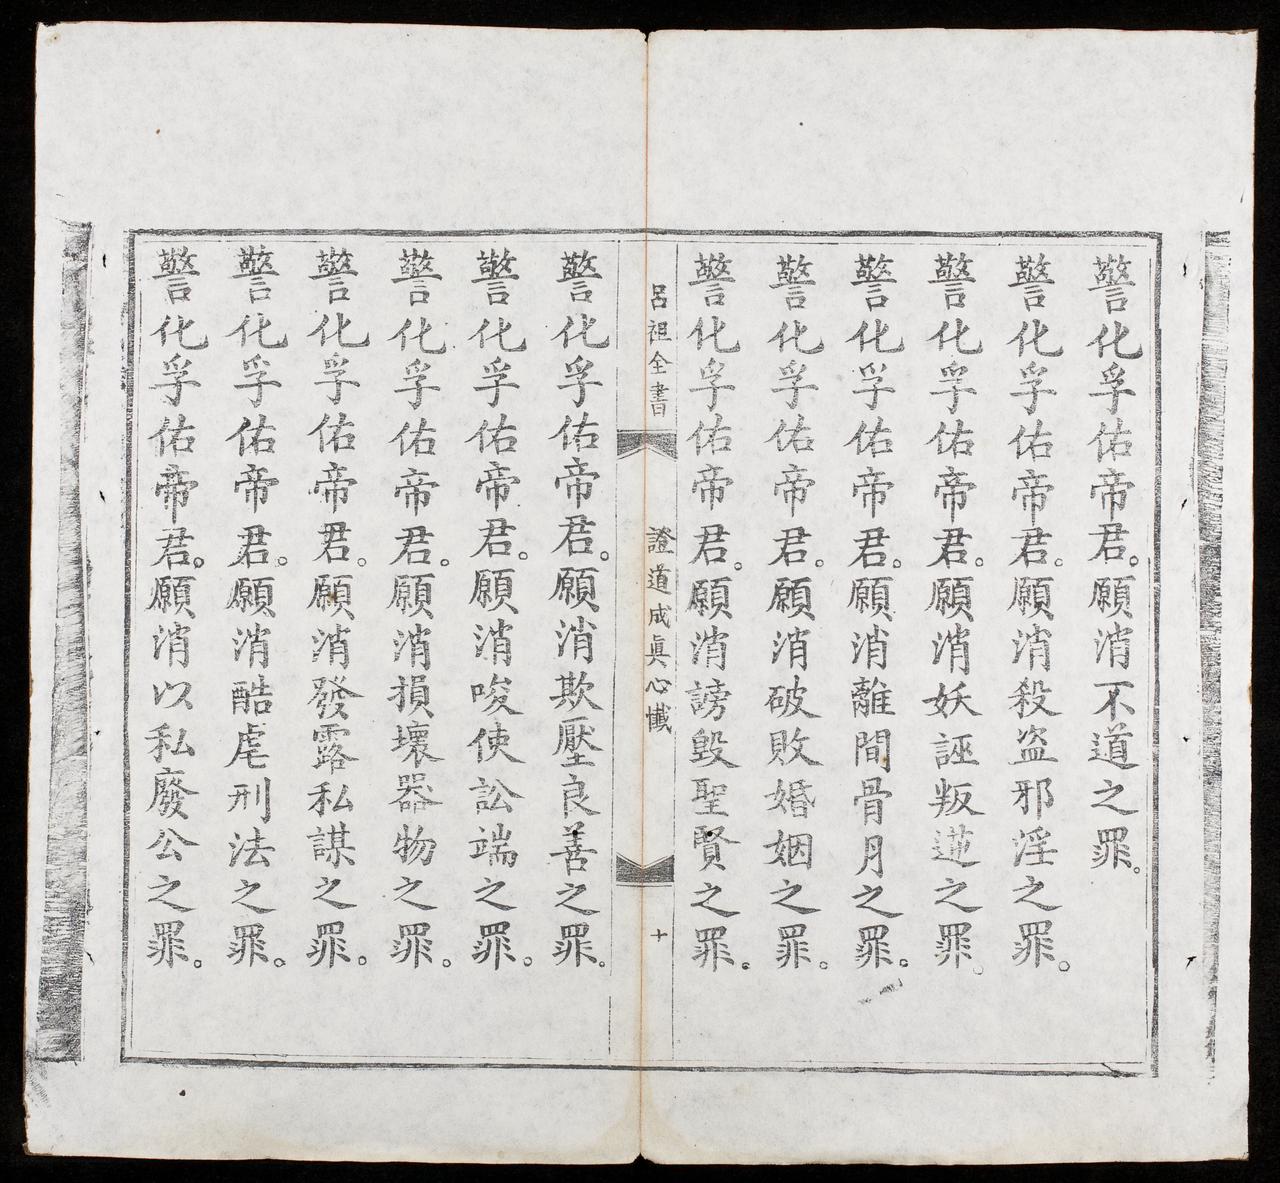 警化孚佑帝君。願消不道之罪。
警化孚佑帝君。願消殺盜邪淫之罪。
警化孚佑帝君。願消妖誣叛逆之罪。
警化孚佑帝君。願消離間骨月之罪。
警化孚佑帝君。願消破敗婚姻之罪。
警化孚佑帝君。願消謗毀聖賢之罪。
呂祖全書 證道成眞心懺 十
警化孚佑帝君。願消欺壓良善之罪。
警化孚佑帝君。願消唆使訟端之罪。
警化孚佑帝君。願消損壞器物之罪。
警化孚佑帝君。願消發露私謀之罪。
警化孚佑帝君。願消酷虐刑法之罪。
警化孚佑帝君。願消以私廢公之罪。